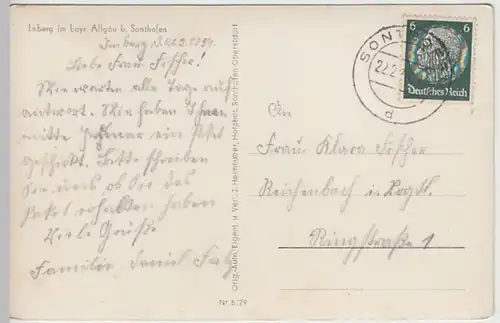 Imberg im bayr. Allgäu b. Sonthofen
Imberg d. 21.2.1939.
Liebe Frau Fischer!
Wir warten alle Tage auf
antwort. Wir haben Ihnen
mitte Januar ein Paket
geschickt. Bitte schreiben
Sie uns ob Sie das
Paket erhalten haben
Viele Grüße
Familie Daniel
Orig.-Aufn. Eigent. u. Verl.: J. Heimhuber, Hofphot., Sonthofen-Oberstdorf
Nr. 8129
SONT
22.2.
d
6 6
Deutsches Reich
An
Frau Klara Fischer
Reichenbach i. Vogtl.
Ringstraße 1